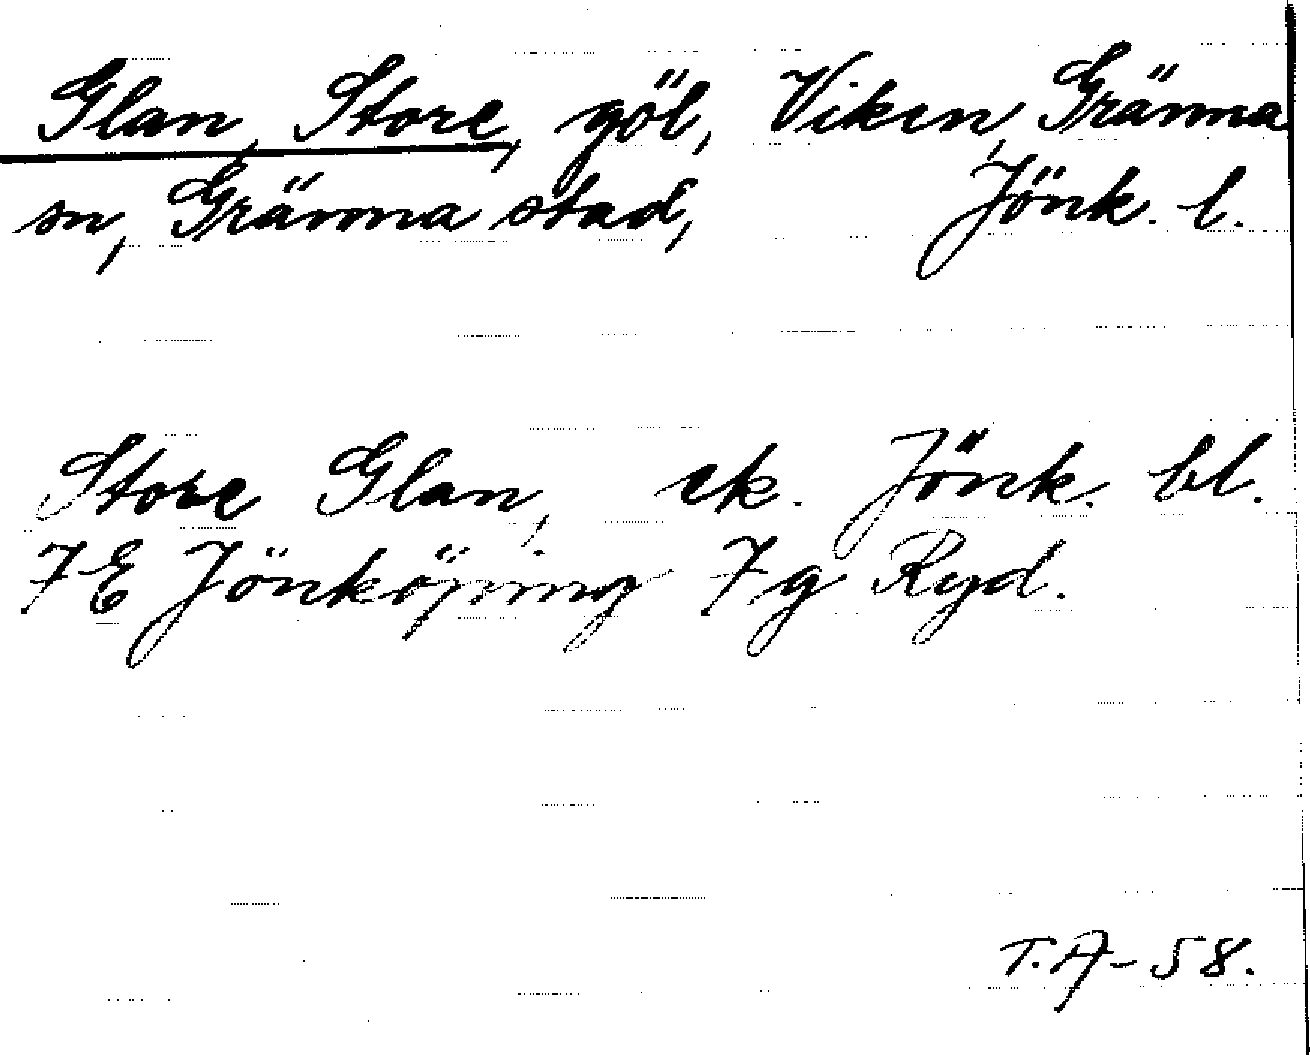 Glan, Store, göl, Viken, Gränna
sn, Gränna stad, Jönk. l.
Store Glan, ek. Jönk. bl.
7E Jönköping 7g Ryd.
T.A-58.